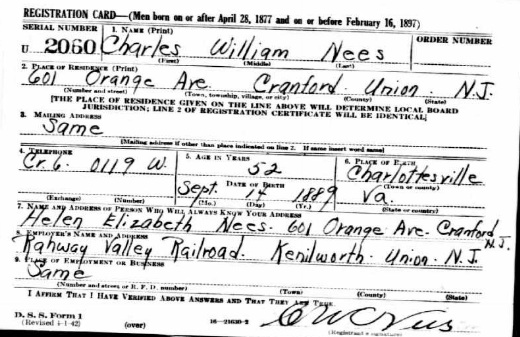 REGISTRATION CARD—(Men born on or after April 28, 1877 and on or before February 16, 1897)
SERIAL NUMBER 1. NAME (Print) ORDER NUMBER
U 2060 Charles William Nees
(First) (Middle) (Last)
2. PLACE OF RESIDENCE (Print)
601 Orange Ave. Cranford Union N.J.
(Number and street) (Town, township, village, or city) (County) (State)
[THE PLACE OF RESIDENCE GIVEN ON THE LINE ABOVE WILL DETERMINE LOCAL BOARD
JURISDICTION; LINE 2 OF REGISTRATION CERTIFICATE WILL BE IDENTICAL]
3. MAILING ADDRESS
Same
[Mailing address if other than place indicated on line 2. If same insert word same]
4. TELEPHONE 5. AGE IN YEARS 6. PLACE OF BIRTH
Cr. 6. 0119 W. 52 Charlottesville
DATE OF BIRTH (Town or county)
Sept. 14 1889 Va.
(Exchange) (Number) (Mo.) (Day) (Yr.) (State or country)
7. NAME AND ADDRESS OF PERSON WHO WILL ALWAYS KNOW YOUR ADDRESS
Helen Elizabeth Nees. 601 Orange Ave. Cranford N.J.
8. EMPLOYER'S NAME AND ADDRESS
Rahway Valley Railroad. Kenilworth. Union. N.J.
9. PLACE OF EMPLOYMENT OR BUSINESS
Same
(Number and street or R. F. D. number) (Town) (County) (State)
I AFFIRM THAT I HAVE VERIFIED ABOVE ANSWERS AND THAT THEY ARE TRUE
CW Nees
D. S. S. Form 1
(Revised 4-1-42) (over) 16—21630-2 (Registrant's signature)